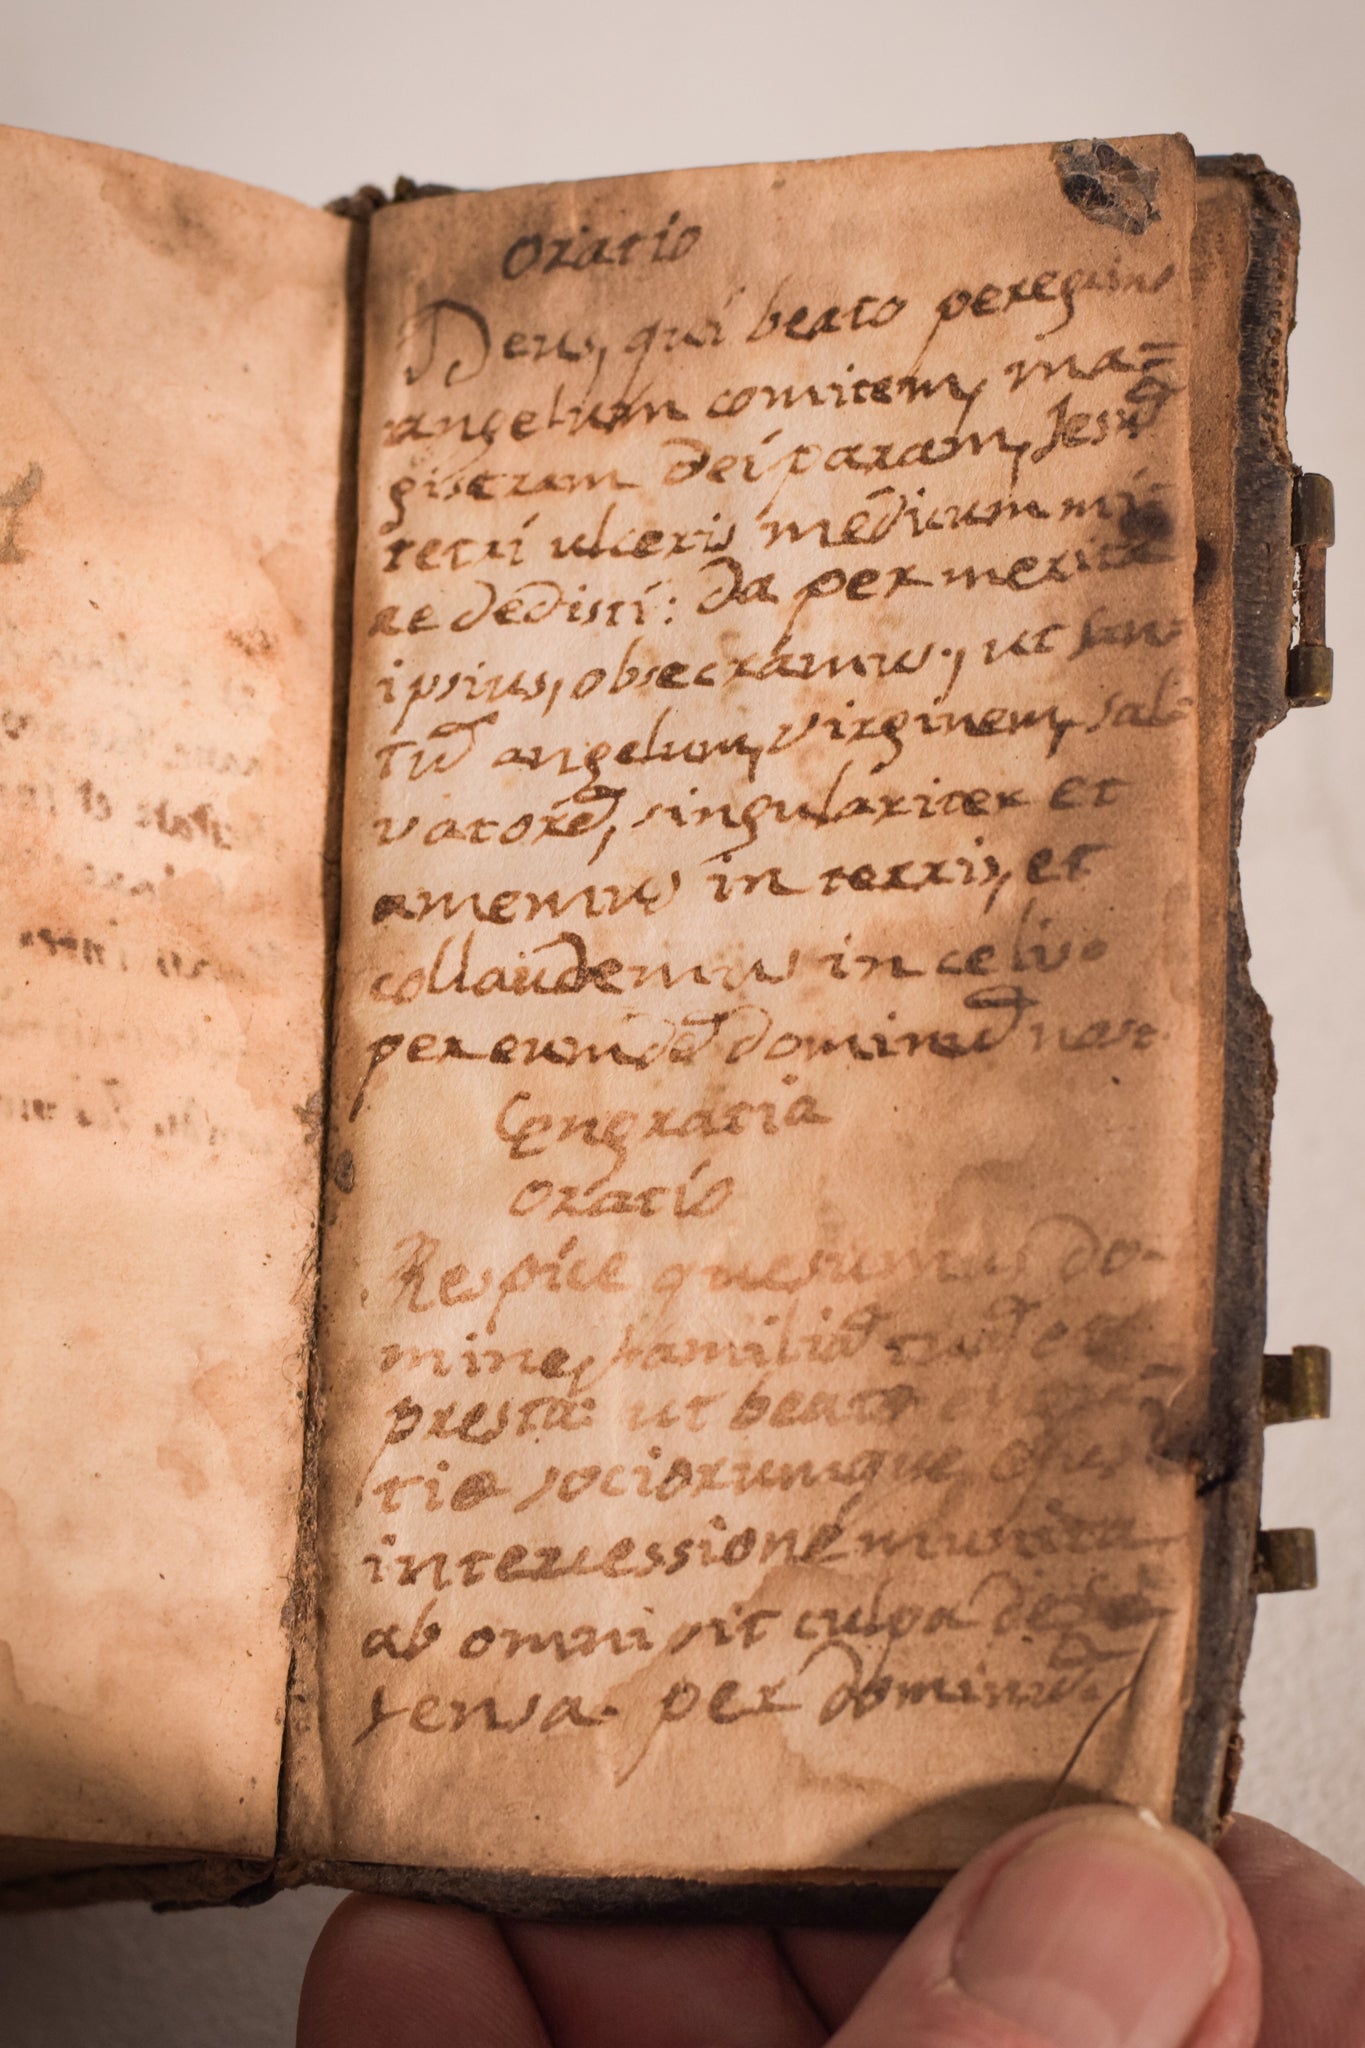 Oratio
Deus, qui beato peregrino
angelum comitem, ma=
gistram deiparam, Jesū
tetri ulceris medicum mi
re dedisti: da per merita
ipsius, obsecramus, ut san
tū angelum, virginem, sal
vatorē, singulariter et
amemus in terris, et
collaudemus in celis.
per eumdē dominū nost
Engratia
Oratio
Respice quesumus do-
mine, familiā tuā et
presta: ut beate
tie sociorumque
intercessione munita
ab omni sit culpa
fensa. per dominū.